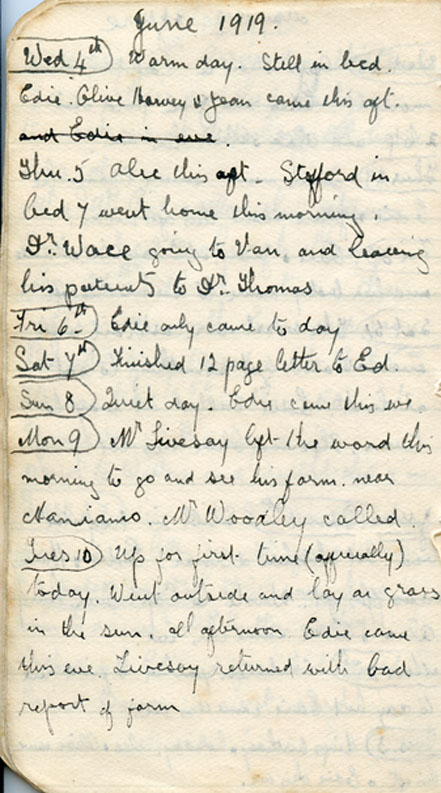 June 1919.
Wed 4th Warm day. Still in bed.
Edie. Olive Harvey & Jean came this aft.
and Edie in eve.
Thu. 5 Alec this aft. Stafford in
bed 7 went home this morning.
Dr. Wace going to Van. and leaving
his patients to Dr. Thomas
Fri 6th Edie only came to day
Sat 7th Finished 12 page letter to Ed.
Sun 8 Quiet day. Edie came this eve
Mon 9 Mr Livesay left the ward this
morning to go and see his farm. near
Naniamo. Mr Woodley called.
Tues 10 Up for first time (officially)
today. Went outside and lay on grass
in the sun. all afternoon Edie came
this eve. Livesay returned with bad
report of farm